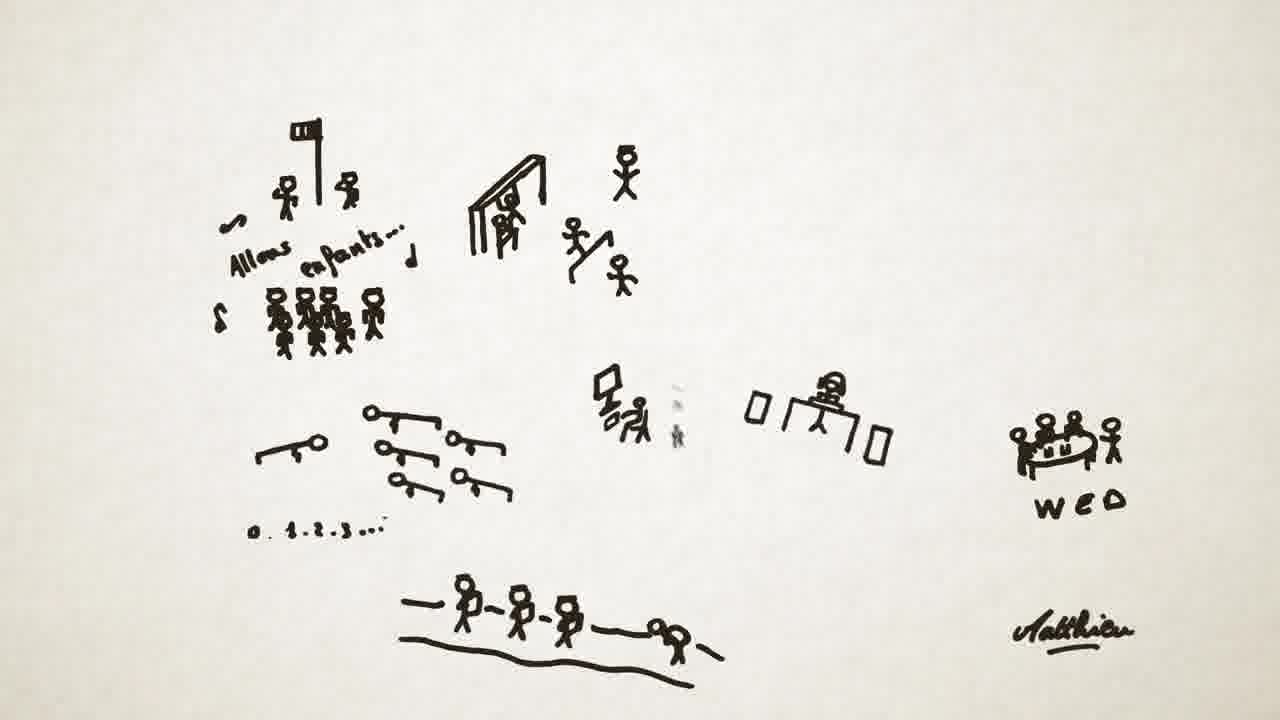 Allons enfants...
0. 1.2.3...
WED
Matthieu